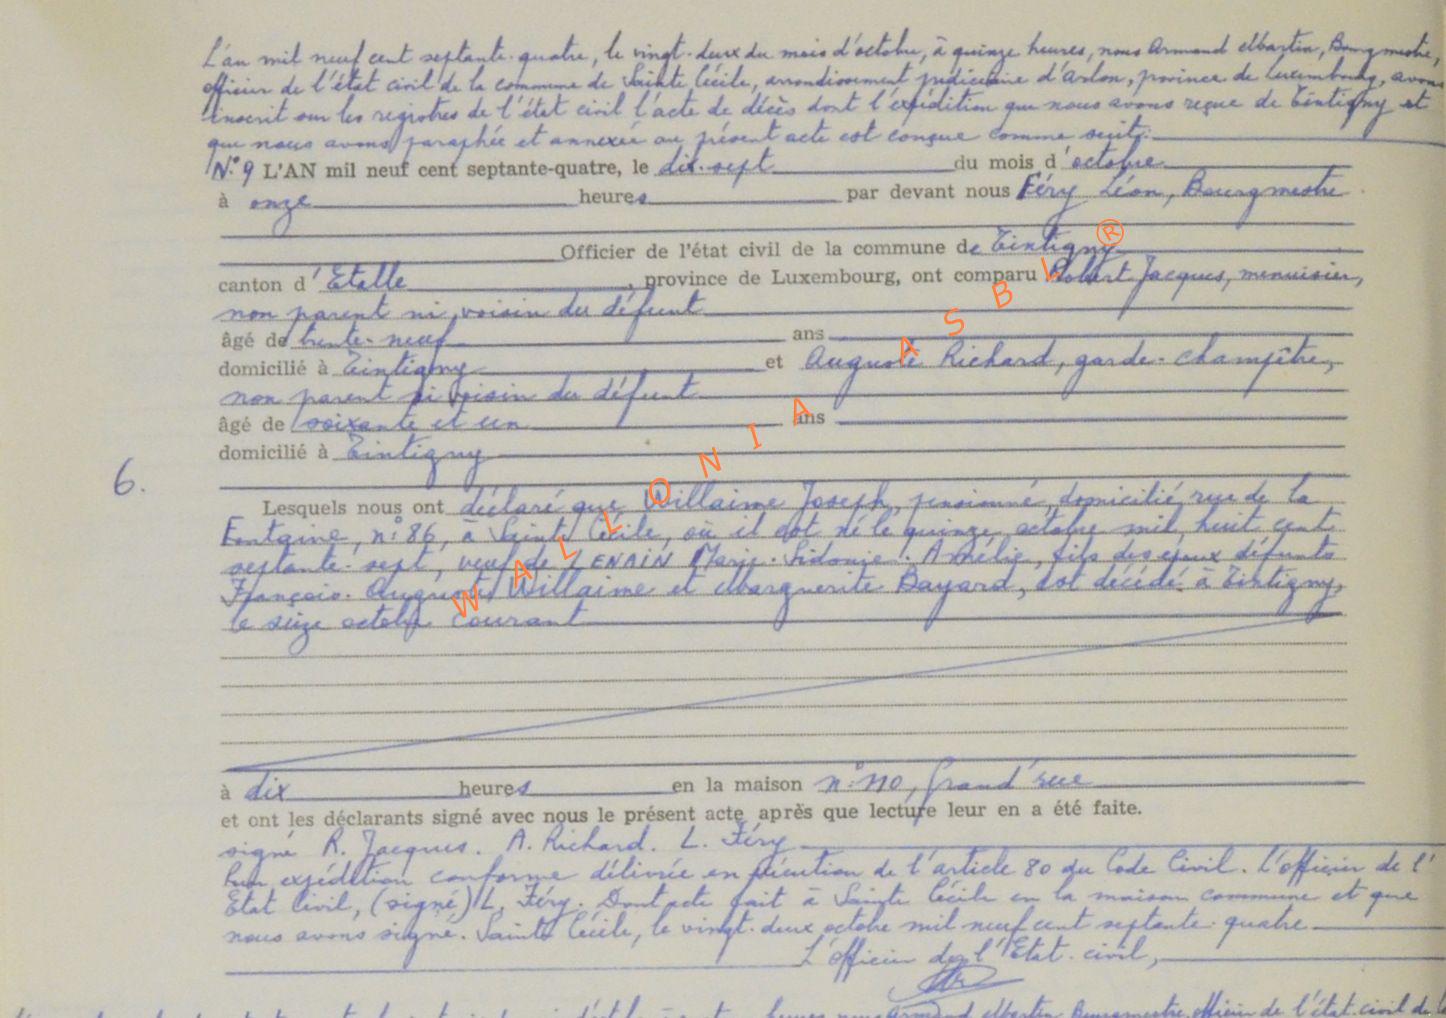 L'an mil neuf cent septante-quatre, le vingt-deux du mois d'octobre, à quinze heures, nous Armand Martin, Bourgmestre,
officier de l'état civil de la commune de Sainte Cécile, arrondissement judiciaire d'Arlon, province de Luxembourg, avons
inscrit sur les registres de l'état civil l'acte de décès dont l'expédition que nous avons reçue de Tintigny et
que nous avons paraphée et annexée au présent acte est conçue comme suit:
N° 9 L'AN mil neuf cent septante-quatre, le dix-sept du mois d'octobre
à onze heures par devant nous Féry Léon, Bourgmestre
Officier de l'état civil de la commune de Tintigny
canton d'Etalle, province de Luxembourg, ont comparu Robert Jacques, menuisier,
non parent ni voisin du défunt
âgé de trente-neuf ans
domicilié à Tintigny et Auguste Richard, garde-champêtre,
non parent ni voisin du défunt
âgé de soixante et un ans
domicilié à Tintigny
6.
Lesquels nous ont déclaré que Willaime Joseph, pensionné, domicilié rue de la
Fontaine, n° 86, à Sainte Cécile, où il est né le quinze octobre mil huit cent
septante-sept, veuf de LENAIN Marie-Sidonie-Amélie, fils des époux défunts
François-Auguste Willaime et Marguerite Bayard, est décédé à Tintigny,
le seize octobre courant
à dix heures en la maison n° 110, Grand'rue
et ont les déclarants signé avec nous le présent acte après que lecture leur en a été faite.
signé R. Jacques. A. Richard. L. Féry
Pour expédition conforme délivrée en exécution de l'article 80 du Code Civil. L'officier de l'
Etat Civil, (signé) L. Féry. Dont acte fait à Sainte Cécile en la maison commune et que
nous avons signé. Sainte Cécile, le vingt-deux octobre mil neuf cent septante-quatre
L'officier de l'Etat-civil,
heures nous Armand Martin Bourgmestre officier de l'état-civil de la
WALLONIA ASBL ®